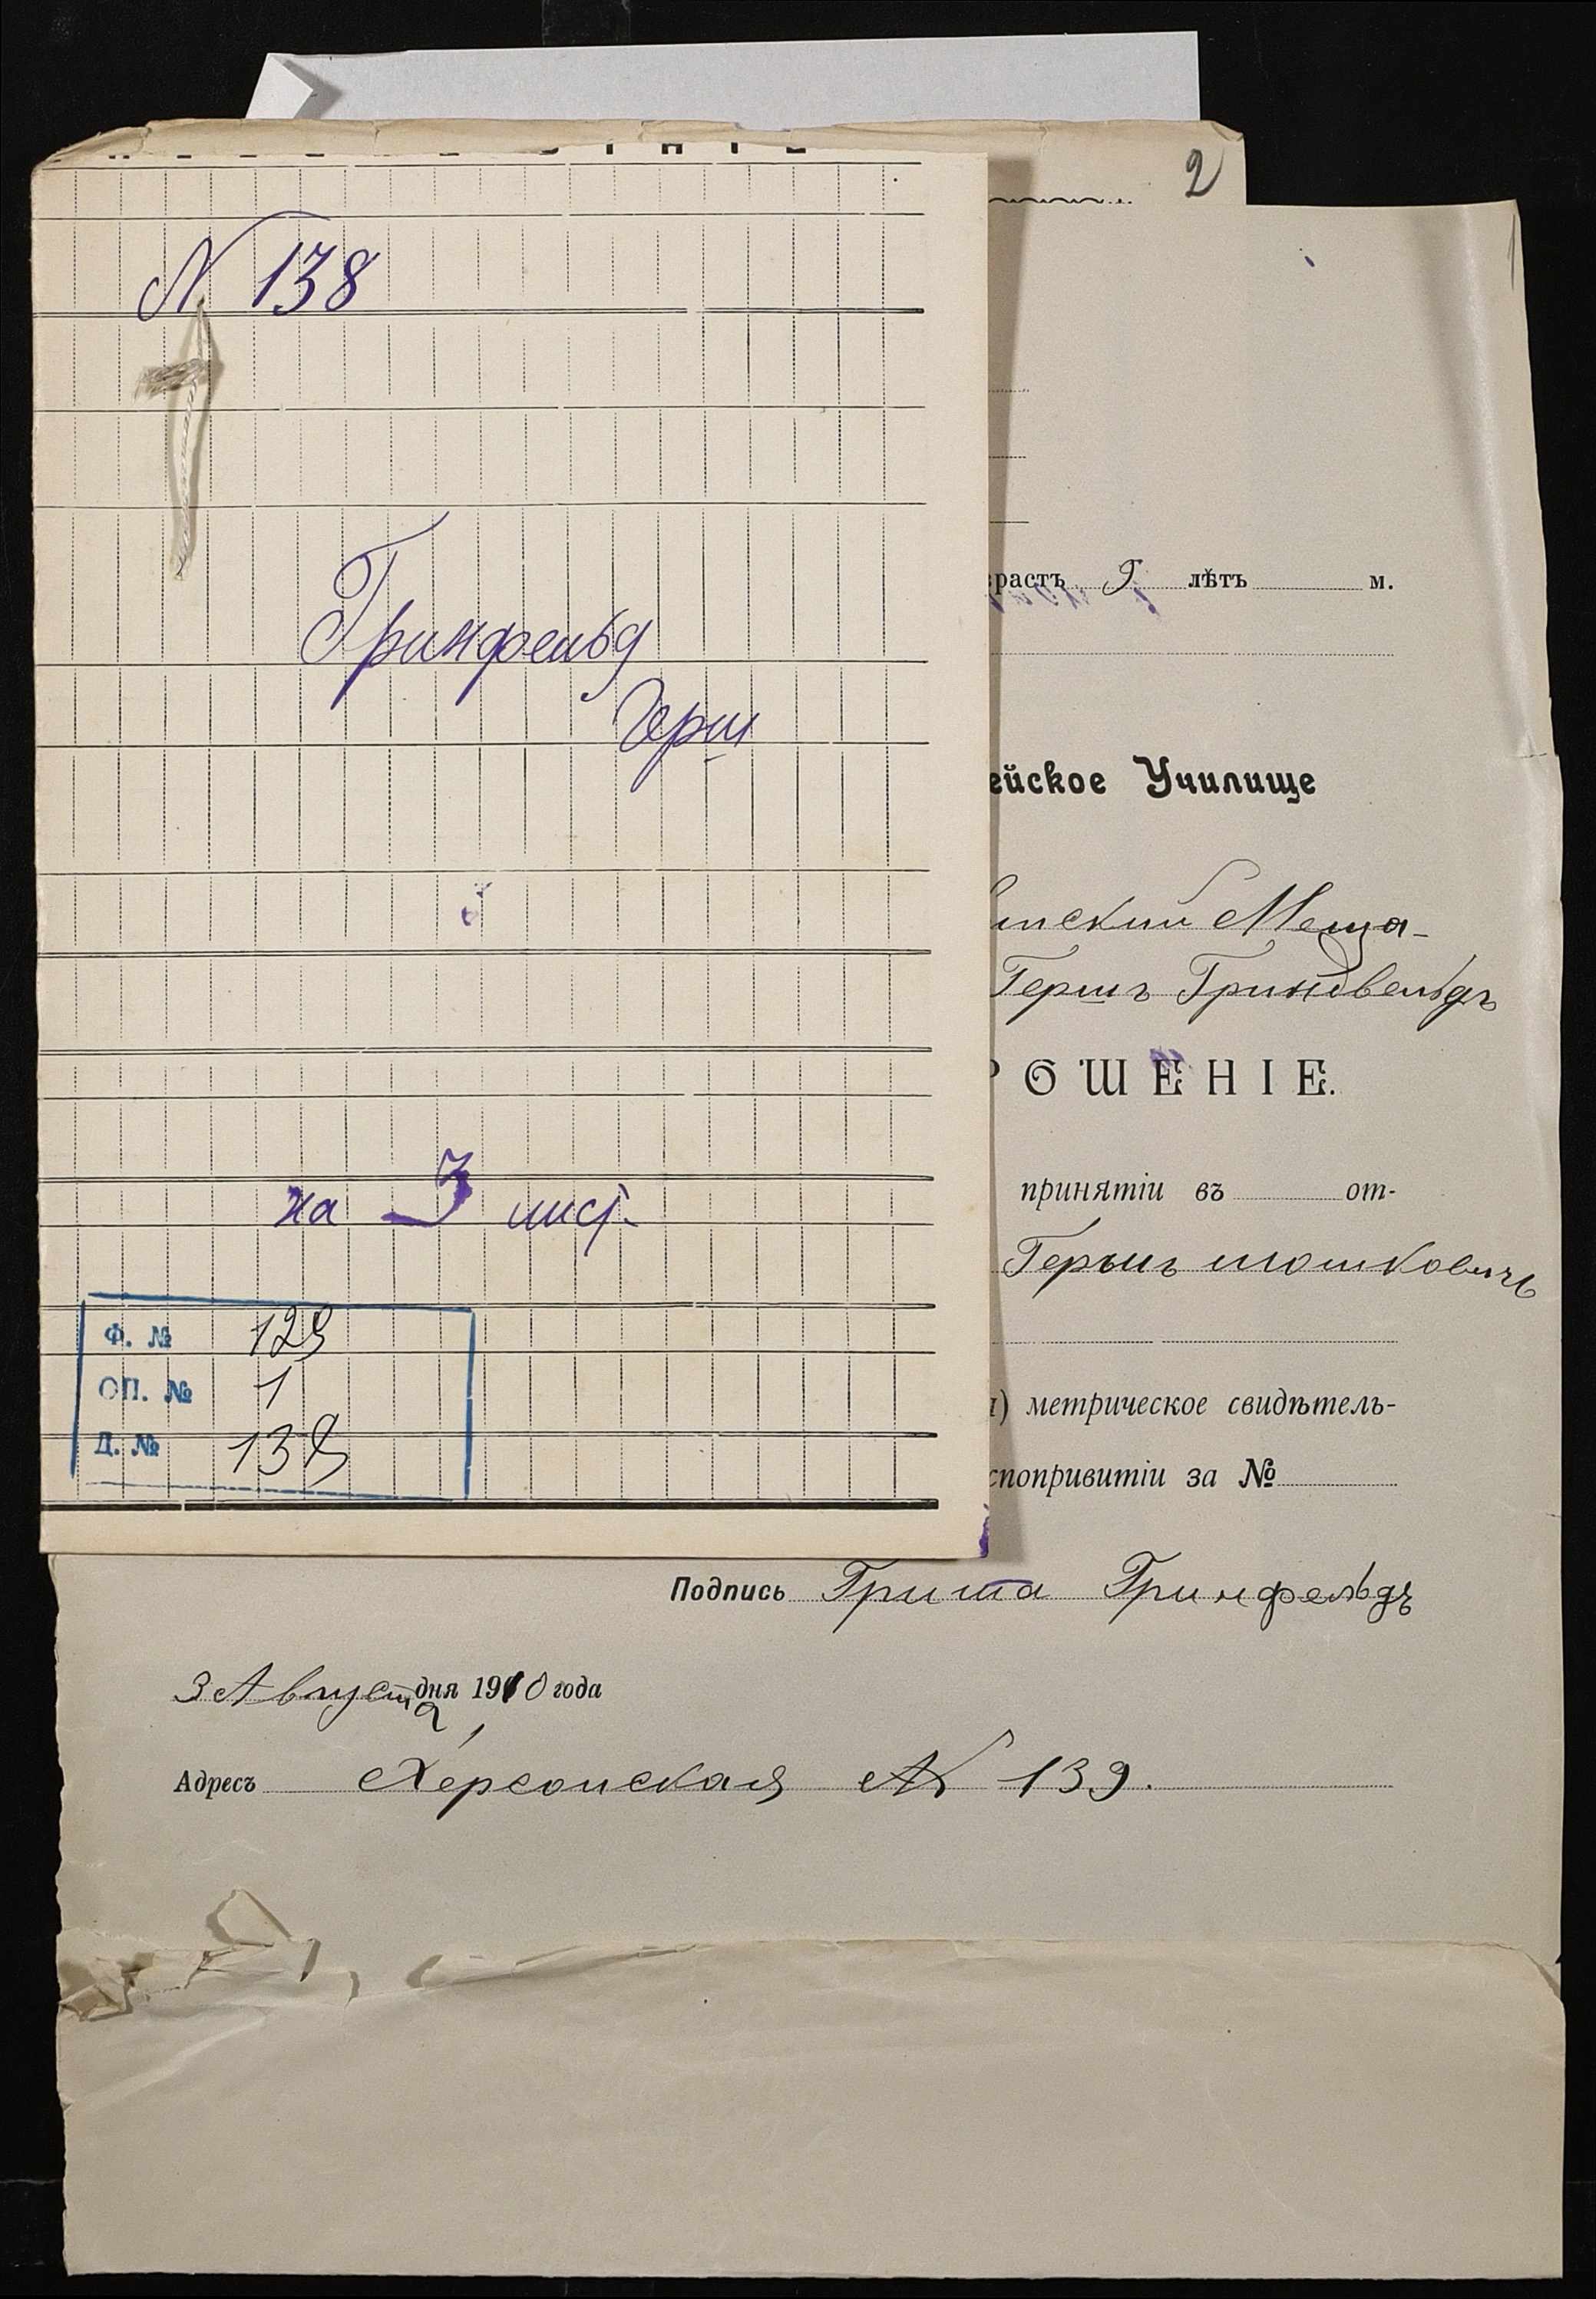 2
N 138
Гринфельд
Герш
на 3 лист.
Ф. № 129
ОП. № 1
Д. № 138
зрастъ 9 лѣтъ м.
ейское Училище
нский Меща-
Гершъ Гриндвельдъ
РОШЕНІЕ.
принятіи въ от-
Гершъ Мошковичъ
) метрическое свидѣтель-
спопривитіи за №
Подпись Гриша Гринфельдъ
3 Августа дня 1910 года
Адресъ Херсонская № 139.